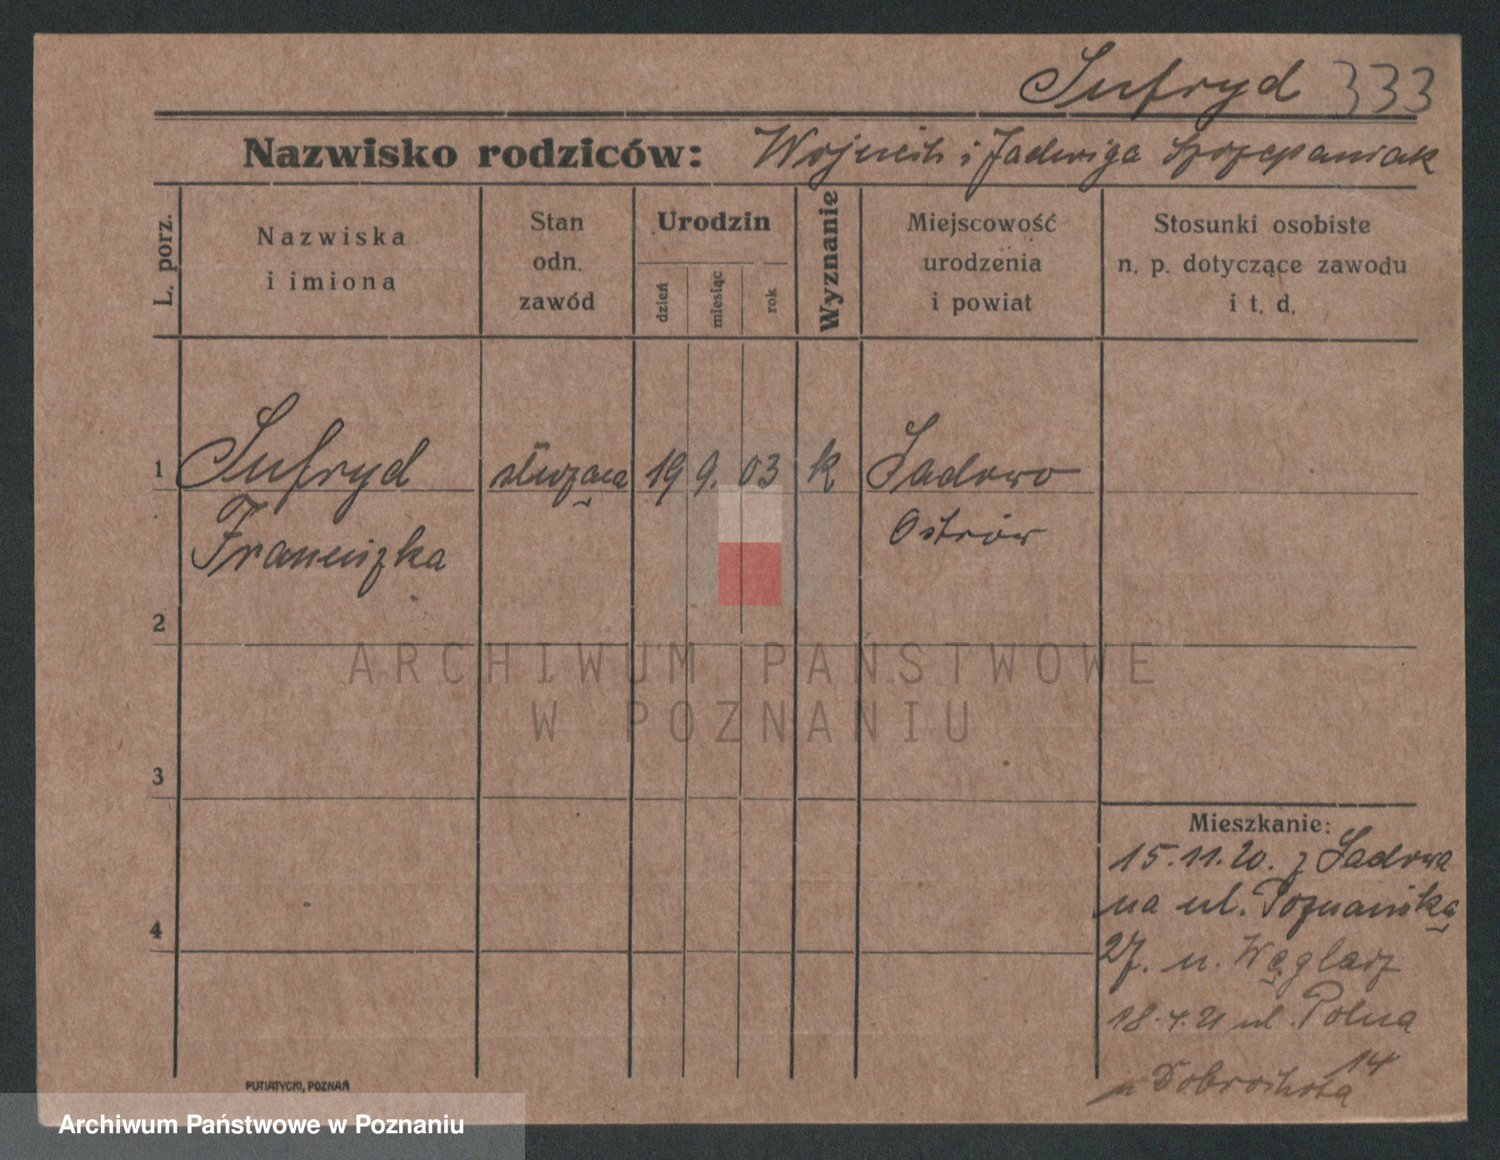 Sufryd 333
Nazwisko rodziców: Wojciech i Jadwiga Szczepaniak
L. porz.
Nazwiska
i imiona
Stan
odn.
zawód
Urodzin
dzień
miesiąc
rok
Wyznanie
Miejscowość
urodzenia
i powiat
Stosunki osobiste
n. p. dotyczące zawodu
i t. d.
1 Sufryd służąca 19 9. 03 k Sadowo
Franciszka Ostrów
2
ARCHIWUM PAŃSTWOWE
W POZNANIU
3
Mieszkanie:
15.11.20. z Sadowa
na ul. Poznańską
4
27. u. Wąglarz
18.4.21 ul. Polna
14
u Dobrochoła
PUTIATYCKI, POZNAŃ
Archiwum Państwowe w Poznaniu